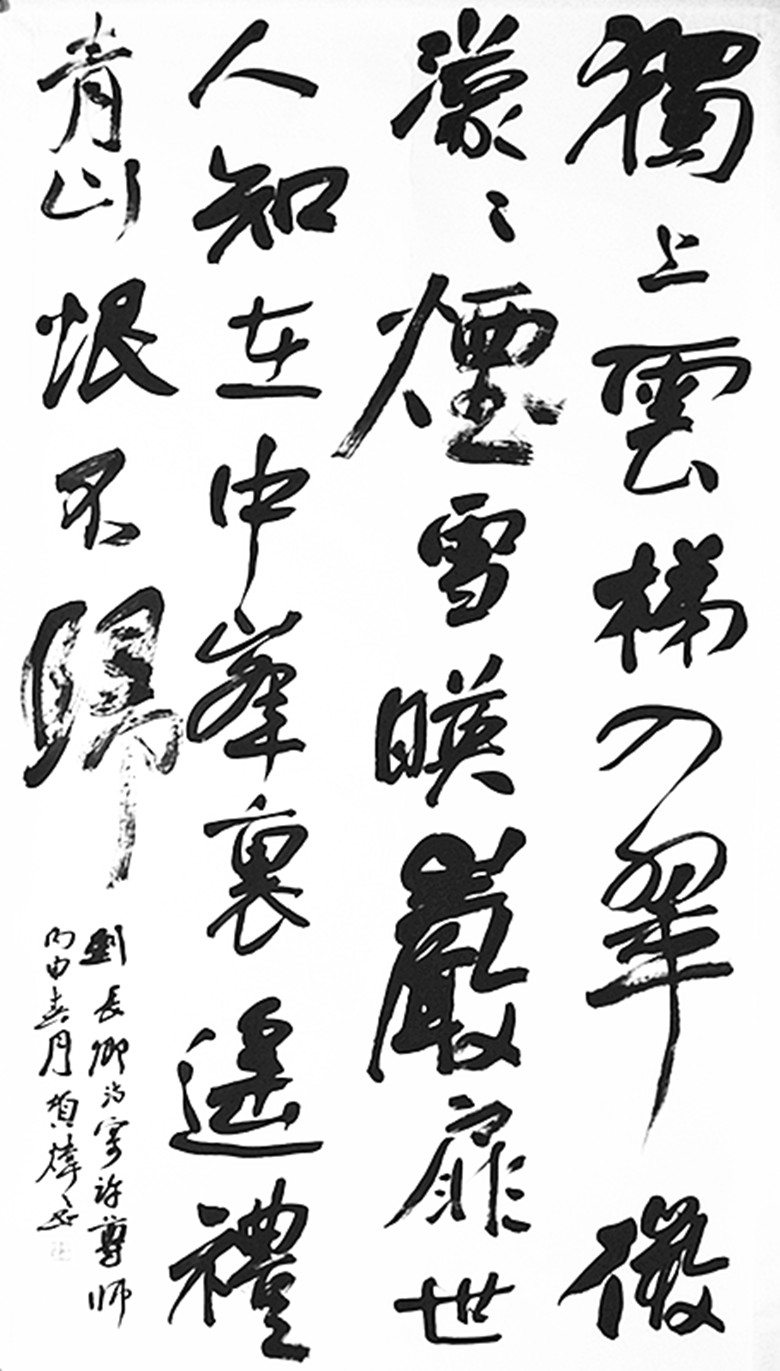 獨上雲梯入翠微
濛〻煙雪映巖扉世
人知在中峯裏遥禮
青山恨不歸
劉長卿詩寄許尊師
丙申春月煒書